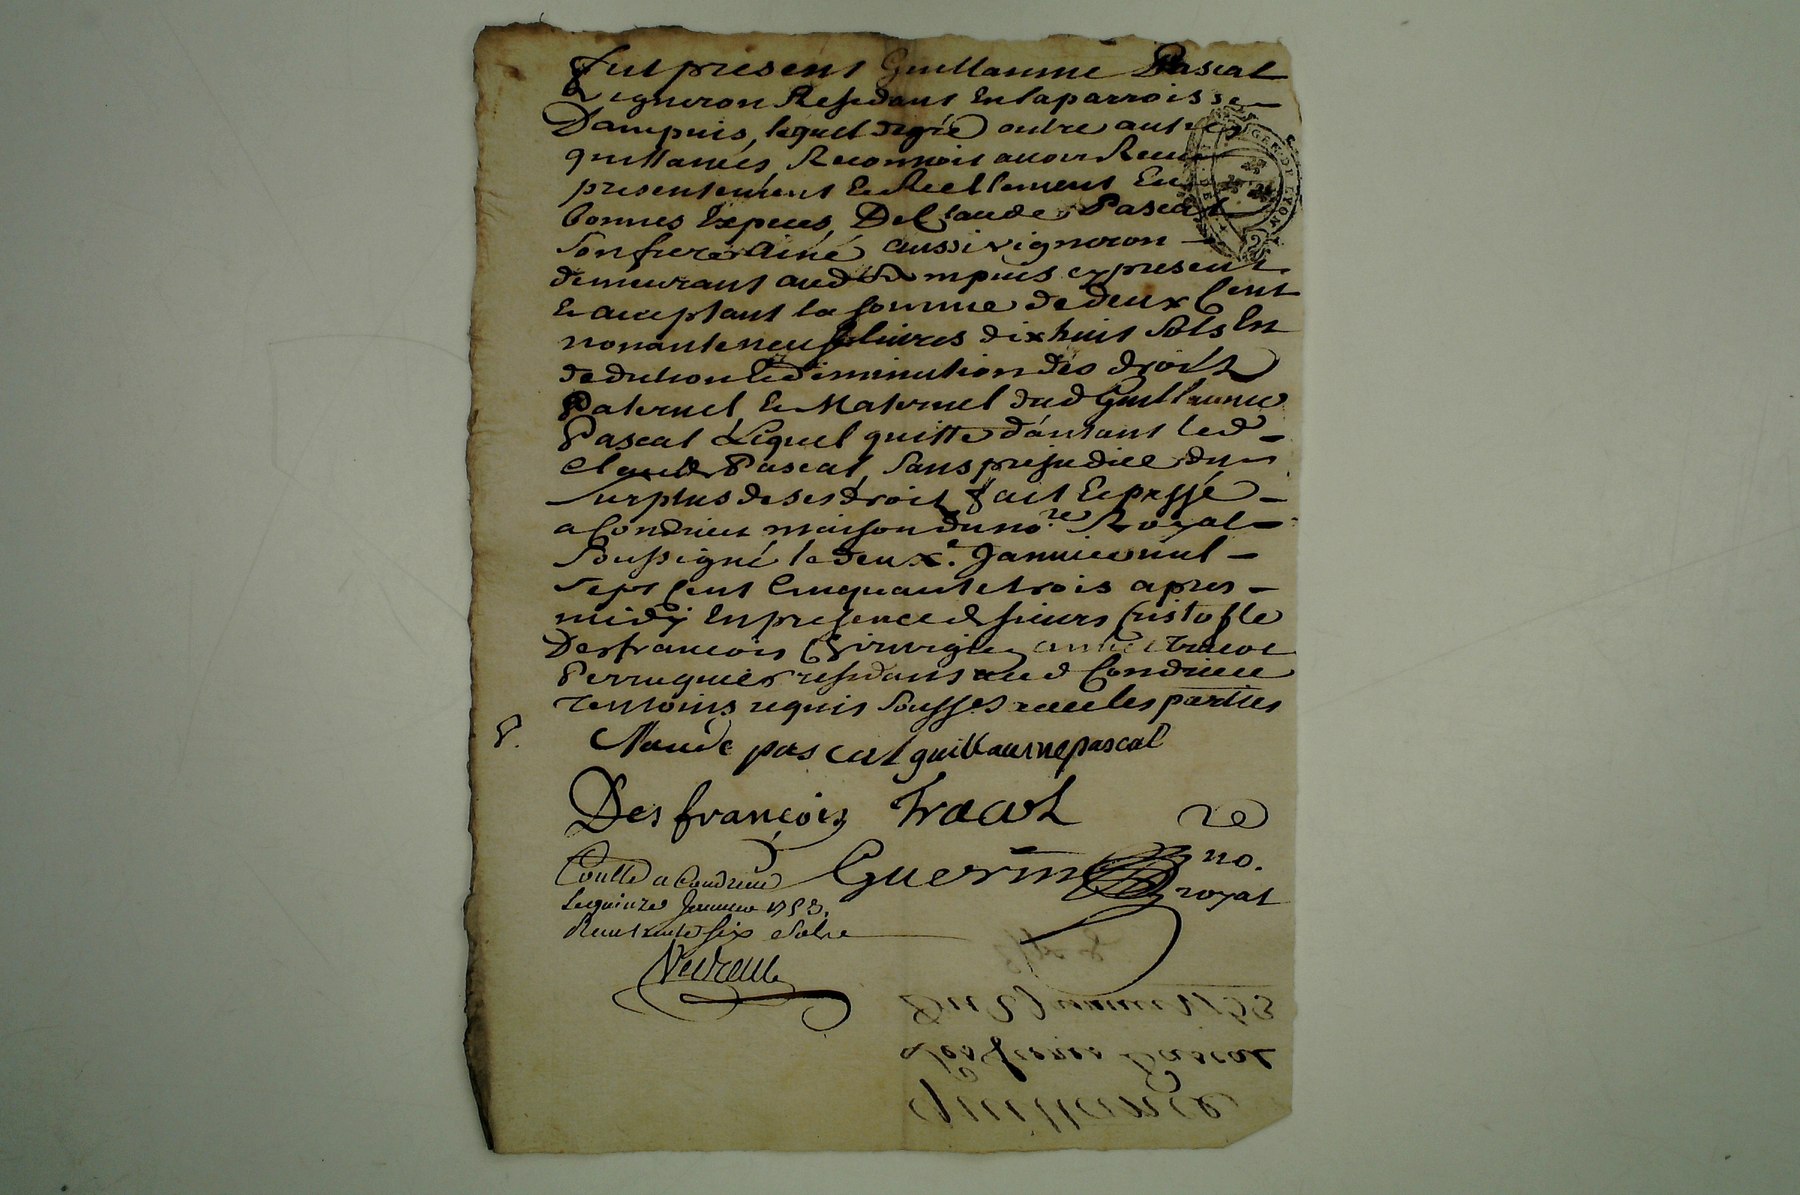 Fut present Guillaume Pascal
Vigneron Residant En la parroisse
Dampuis, lequel de gré outre autres
quittances Reconnoit avoir Receu
presentement Et Reellement En
bonnes Especes De Claude Pascal
Son frere Ainé aussi vigneron
demeurant aud Dampuis cy present
Et acceptant la somme de deux Cent
nonante neuf livres dix huit Sols En
deduction Et Diminution des droits
Paternel Et Maternel dud Guillaume
Pascal Lequel quitte d'autant led
Claude Pascal Sans prejudice du
Surplus de ses droit fait Et passé
a Condrieu maison du no.re Royal
Soussigné le deuxe. Janvier mil
Sept Cent Cinquante trois apres
midy En presence de sieurs Cristofle
Desfrancois Chirurgien Tracol
Perruquier residants aud Condrieu
Temoins requis Soussés avec les parties
Claude pascal guillaume pascal
Des françois Tracol
Guerin no.
royal
Conllé a Condrieu
Le quinze Janvier 1753.
Receu trente six
GEN DE LYON
Quittance
a Les freres Pascal
Du 2 Janvier 1753